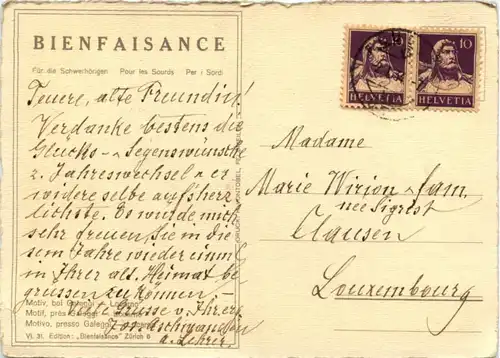 BIENFAISANCE
Für die Schwerhörigen Pour les Sourds Per i Sordi
Teuere, alte Freundin!
Verdanke bestens die
Glücks- & Segenswünsche
z. Jahreswechsel & er
widere selbe aufs herz
lichste. Es würde mich
sehr freuen Sie in die
sem Jahre wieder einmal
in Ihrer alt. Heimat be
grüssen zu können.
Gute Grüsse v. Ihrem
a. Lehrer.
Motiv, bei
Motif, près
Motivo, presso
VI. 31. Edition: „Bienfaisance" Zürich 6
10
HELVETIA
10
HELVETIA
Madame
Marie Wirion & Fam.
née Sigrist
Clausen
Louxembourg